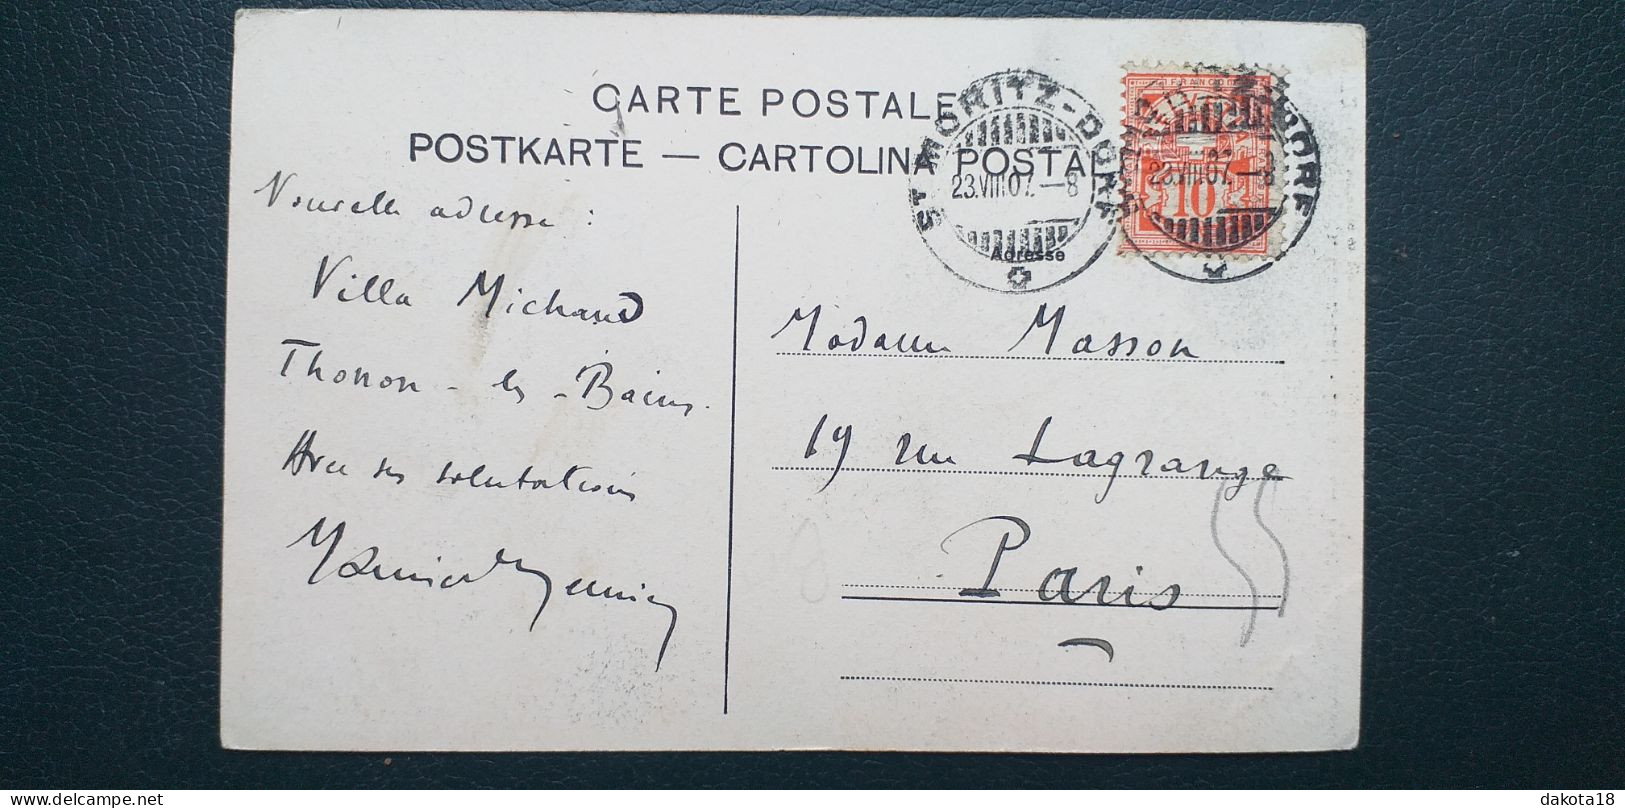 CARTE POSTALE
POSTKARTE — CARTOLINA POSTAL
ST MORITZ-DORF
23.VIII.07.—8
FRANCO
10
23.VIII.07.—8
Adresse
Nouvelle adresse :
Villa Michaud
Thonon-les-Bains.
Avec ses salutations
Madame Masson
19 rue Lagrange
Paris
dakota18